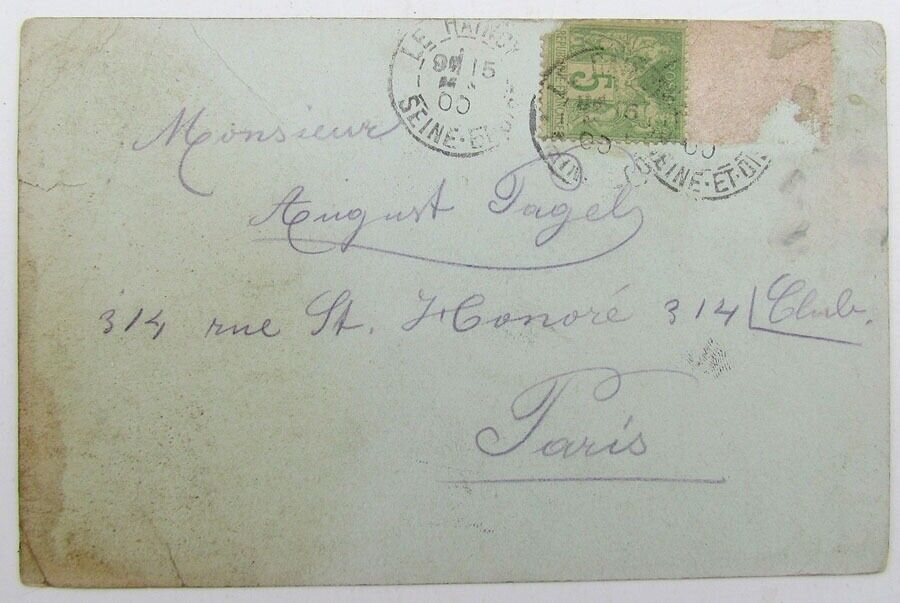 LE RAINCY
9 15
00
SEINE-ET-OISE
5
00
SEINE-ET-OISE
Monsieur
August Pagel
314 rue St. Honoré 314 Club.
Paris